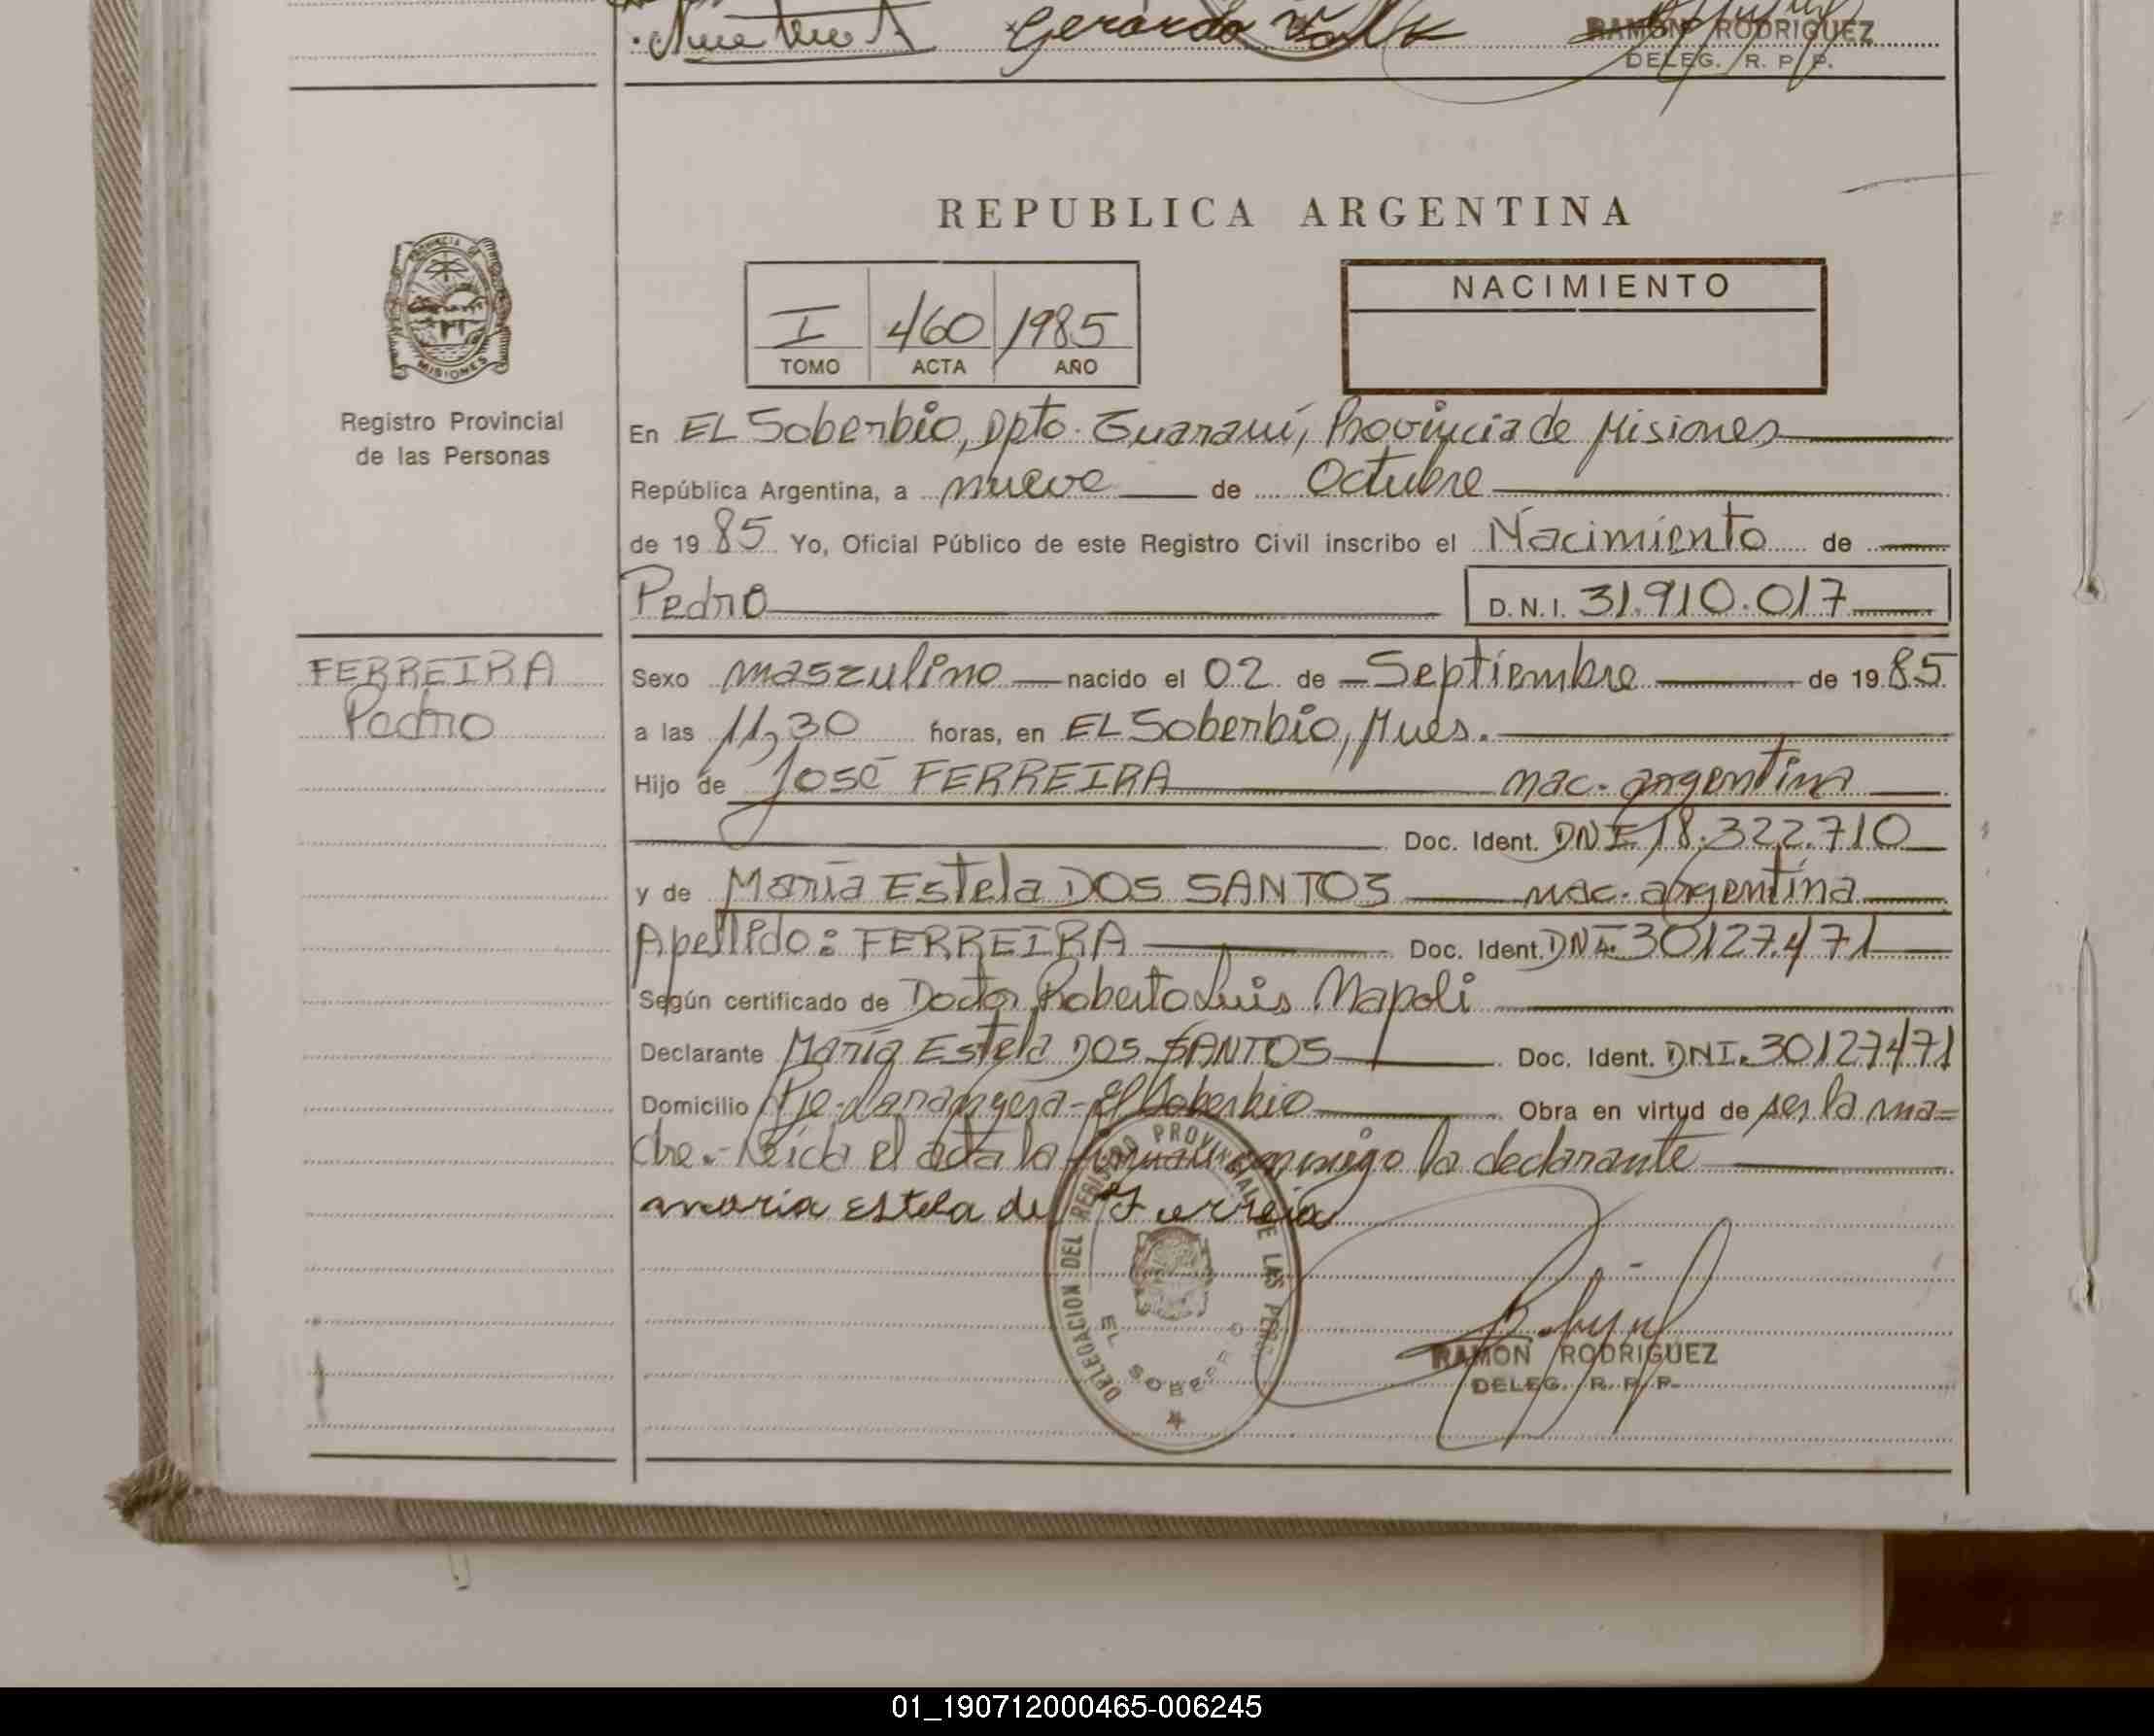 Gerardo
RAMON RODRIGUEZ
DELEG. R. P. P.
REPUBLICA ARGENTINA
PROVINCIA DE MISIONES
Registro Provincial
de las Personas
I 460 1985
TOMO ACTA AÑO
NACIMIENTO
En EL Soberbio, Dpto. Guaraní, Provincia de Misiones
República Argentina, a nueve de Octubre
de 1985 Yo, Oficial Público de este Registro Civil inscribo el Nacimiento de
Pedro D.N.I. 31.910.017
FERREIRA
Pedro
Sexo masculino nacido el 02 de Septiembre de 1985
a las 11,30 horas, en EL Soberbio, Mnes.
Hijo de José FERREIRA nac. argentina
Doc. Ident. DNI 18.322.710
y de María Estela DOS SANTOS nac. argentina
Apellido: FERREIRA Doc. Ident. DNI. 30127.471
Según certificado de Doctor Roberto Luis Napoli
Declarante María Estela DOS SANTOS Doc. Ident. DNI. 30127471
Domicilio Pje. El Soberbio Obra en virtud de ser la ma=
dre.- Leída el acta la firman conmigo la declarante
maria Estela de Ferreia
DELEGACION DEL REGISTRO PROVINCIAL DE LAS PERS
EL SOBERBIO
RAMON RODRIGUEZ
DELEG. R. P. P.
01_190712000465-006245